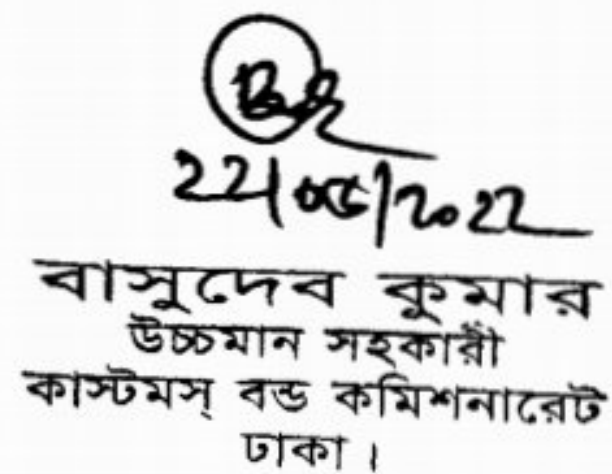 22/05/2022
বাসুদেব কুমার
উচ্চমান সহকারী
কাস্টমস্ বন্ড কমিশনারেট
ঢাকা।